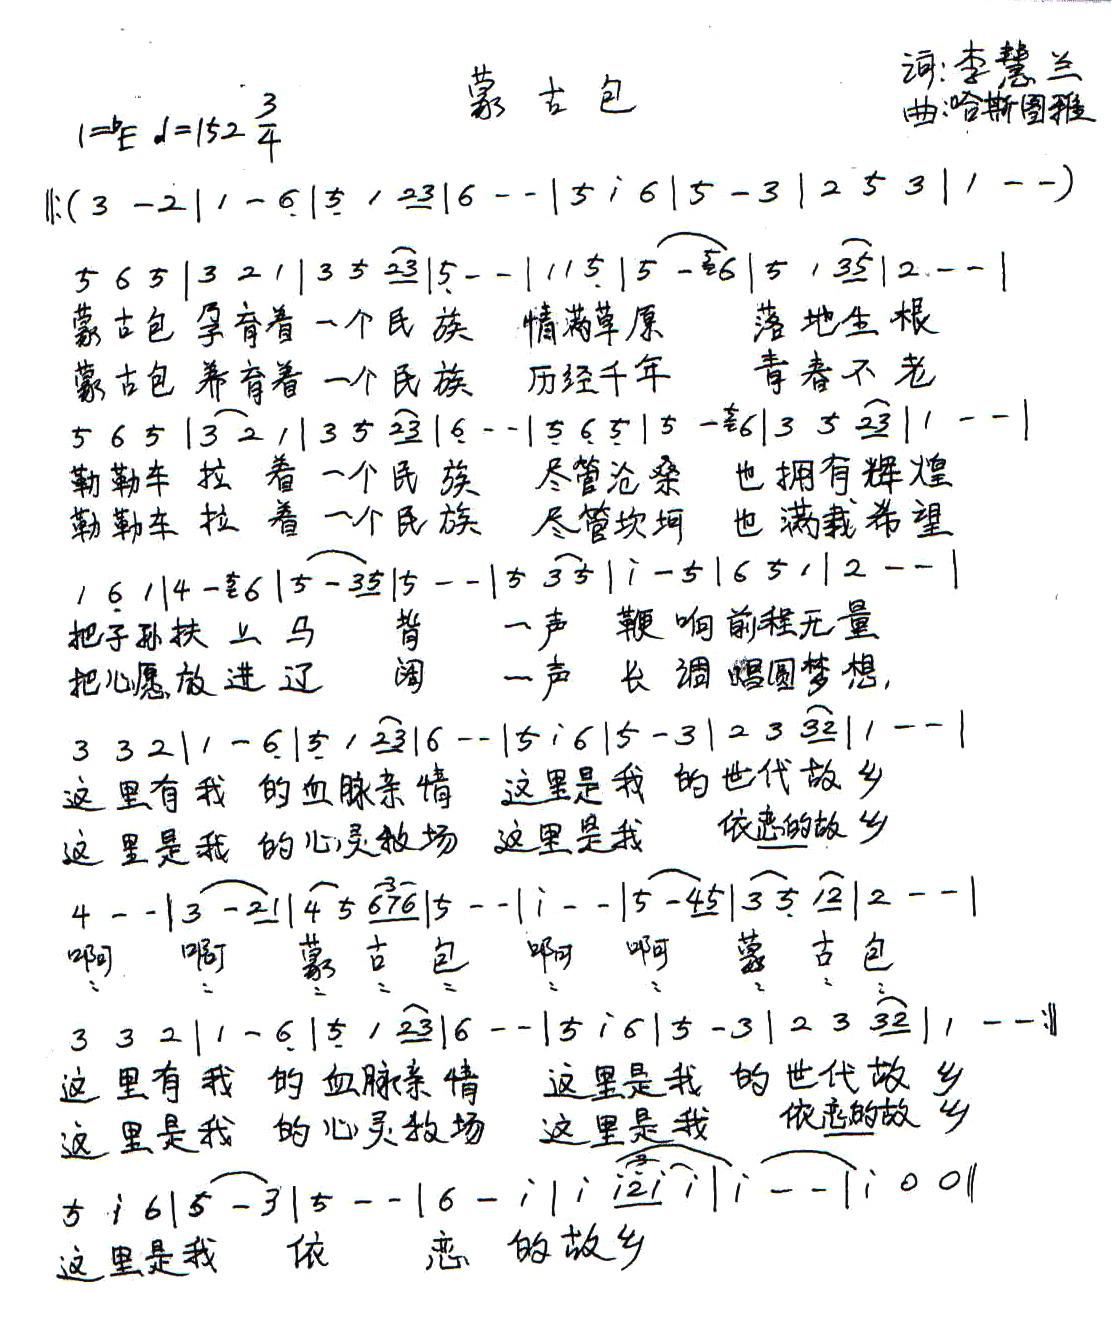 蒙古包
词:李慧兰
曲:哈斯图雅
1=bE d=152 3/4
‖:(3 - 2 | 1 - 6 | 5 1 23 | 6 - - | 5 i 6 | 5 - 3 | 2 5 3 | 1 - - )
5 6 5 | 3 2 1 | 3 5 23 | 5 - - | 1 1 5 | 5 - 56 | 5 1 35 | 2 - - |
蒙古包 孕育着 一个民族 情满草原 落地生根
蒙古包 养育着 一个民族 历经千年 青春不老
5 6 5 | 3 2 1 | 3 5 23 | 6 - - | 5 6 5 | 5 - 56 | 3 5 23 | 1 - - |
勒勒车 拉着 一个民族 尽管沧桑 也拥有辉煌
勒勒车 拉着 一个民族 尽管坎坷 也满载希望
1 6 1 | 4 - 56 | 5 - 35 | 5 - - | 5 3 5 | i - 5 | 6 5 1 | 2 - - |
把子孙扶上马背 一声鞭响前程无量
把心愿放进辽阔 一声长调唱圆梦想,
3 3 2 | 1 - 6 | 5 1 23 | 6 - - | 5 i 6 | 5 - 3 | 2 3 32 | 1 - - |
这里有我 的血脉亲情 这里是我 的世代故乡
这里是我 的心灵牧场 这里是我 依恋的故乡
4 - - | 3 - 21 | 4 5 676 | 5 - - | i - - | 5 - 45 | 3 5 12 | 2 - - |
啊 啊 蒙古包 啊 啊 蒙古包
3 3 2 | 1 - 6 | 5 1 23 | 6 - - | 5 i 6 | 5 - 3 | 2 3 32 | 1 - - :‖
这里有我 的血脉亲情 这里是我 的世代故乡
这里是我 的心灵牧场 这里是我 依恋的故乡
5 i 6 | 5 - 3 | 5 - - | 6 - i | i i2i i | i - - | i 0 0 ‖
这里是我 依 恋 的故乡